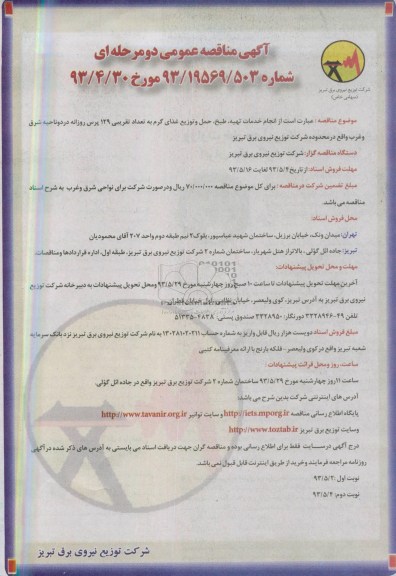 آگهی مناقصه عمومی دو مرحله ای
شماره ۹۳/۱۹۵۶۹/۵۰۳ مورخ ۹۳/۴/۳۰
شرکت توزیع نیروی برق تبریز
(سهامی خاص)
موضوع مناقصه : عبارت است از انجام خدمات تهیه، طبخ، حمل و توزیع غذای گرم به تعداد تقریبی ۱۲۹ پرس روزانه در دو ناحیه شرق
و غرب واقع در محدوده شرکت توزیع نیروی برق تبریز
دستگاه مناقصه گزار: شرکت توزیع نیروی برق تبریز
مهلت فروش اسناد: از تاریخ ۹۳/۵/۴ لغایت ۹۳/۵/۱۶
مبلغ تضمین شرکت در مناقصه : برای کل موضوع مناقصه ۷۰/۰۰۰/۰۰۰ ریال و در صورت شرکت برای نواحی شرق و غرب به شرح اسناد
مناقصه می باشد.
محل فروش اسناد:
تهران: میدان ونک، خیابان برزیل، ساختمان شهید عباسپور، بلوک ۲ نیم طبقه دوم واحد ۲۰۷ آقای محمودیان
تبریز: جاده ائل گؤلی، بالاتر از هتل شهریار، ساختمان شماره ۲ شرکت توزیع نیروی برق تبریز، طبقه اول، اداره قراردادها و مناقصات.
مهلت و محل تحویل پیشنهادات:
آخرین مهلت تحویل پیشنهادات تا ساعت ۱۰ صبح روز چهارشنبه مورخ ۹۳/۵/۲۹ و محل تحویل پیشنهادات به دبیرخانه شرکت توزیع
نیروی برق تبریز به آدرس تبریز، کوی ولیعصر، خیابان نظامی، اول خیابان قطران
تلفن ۴۹-۳۳۲۸۹۴۶ دورنگار ۳۳۲۸۹۵۰ صندوق پستی ۶۸۳۸-۵۱۳۳۵
مبلغ فروش اسناد دویست هزار ریال قابل واریز به شماره حساب ۱۳۰۲۸۱۰۲۰۳۱۱ به نام شرکت توزیع نیروی برق تبریز نزد بانک سرمایه
شعبه تبریز واقع در کوی ولیعصر - فلکه بارنج با ارائه معرفینامه کتبی
ساعت، روز و محل قرائت پیشنهادات :
ساعت ۱۱ روز چهارشنبه مورخ ۹۳/۵/۲۹ ساختمان شماره ۲ شرکت توزیع نیروی برق تبریز واقع در جاده ائل گؤلی.
آدرس های اینترنتی شرکت بدین شرح می باشد:
پایگاه اطلاع رسانی مناقصه http://iets.mporg.ir و سایت توانیر http://www.tavanir.org.ir
وسایت توزیع برق تبریز http://www.toztab.ir
درج آگهی در ســایت فقط برای اطلاع رسانی بوده و مناقصه گران جهت دریافت اسناد می بایستی به آدرس های ذکر شده در آگهی
روزنامه مراجعه فرمایند و خرید از طریق اینترنت قابل قبول نمی باشد.
نوبت اول :۹۳/۵/۲
نوبت دوم: ۹۳/۵/۴
شرکت توزیع نیروی برق تبریز